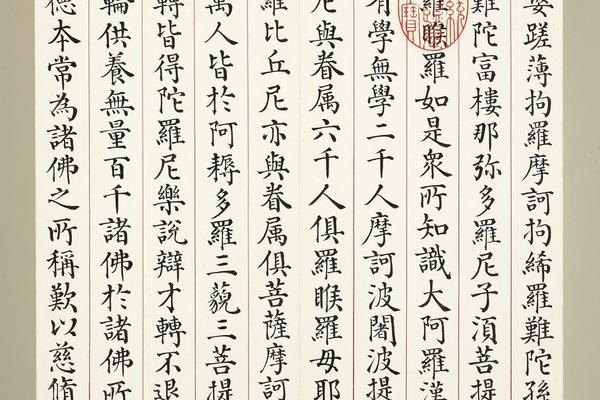 婆蹉薄拘羅摩訶拘絺羅難陀孫
難陀富樓那弥多羅尼子湏菩提
羅睺羅如是衆所知識大阿羅漢
有學無學二千人摩訶波闍波提
尼與眷属六千人俱羅睺羅母耶
羅比丘尼亦與眷属俱菩薩摩訶
萬人皆於阿耨多羅三藐三菩提
轉皆得陀羅尼樂說辯才轉不退
輪供養無量百千諸佛於諸佛所
德本常為諸佛之所稱歎以慈脩